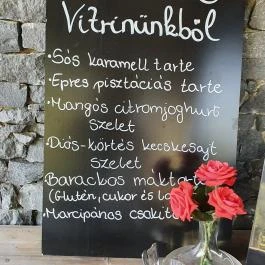 Vitrinünkből
• Sós karamell tarte
• Epres pisztáciás tarte
• Mangós citromjoghurt
szelet
• Diós-körtés kecskesajt
szelet
• Barackos mákta
(Glutén, cukor és la
• Marcipános csoki